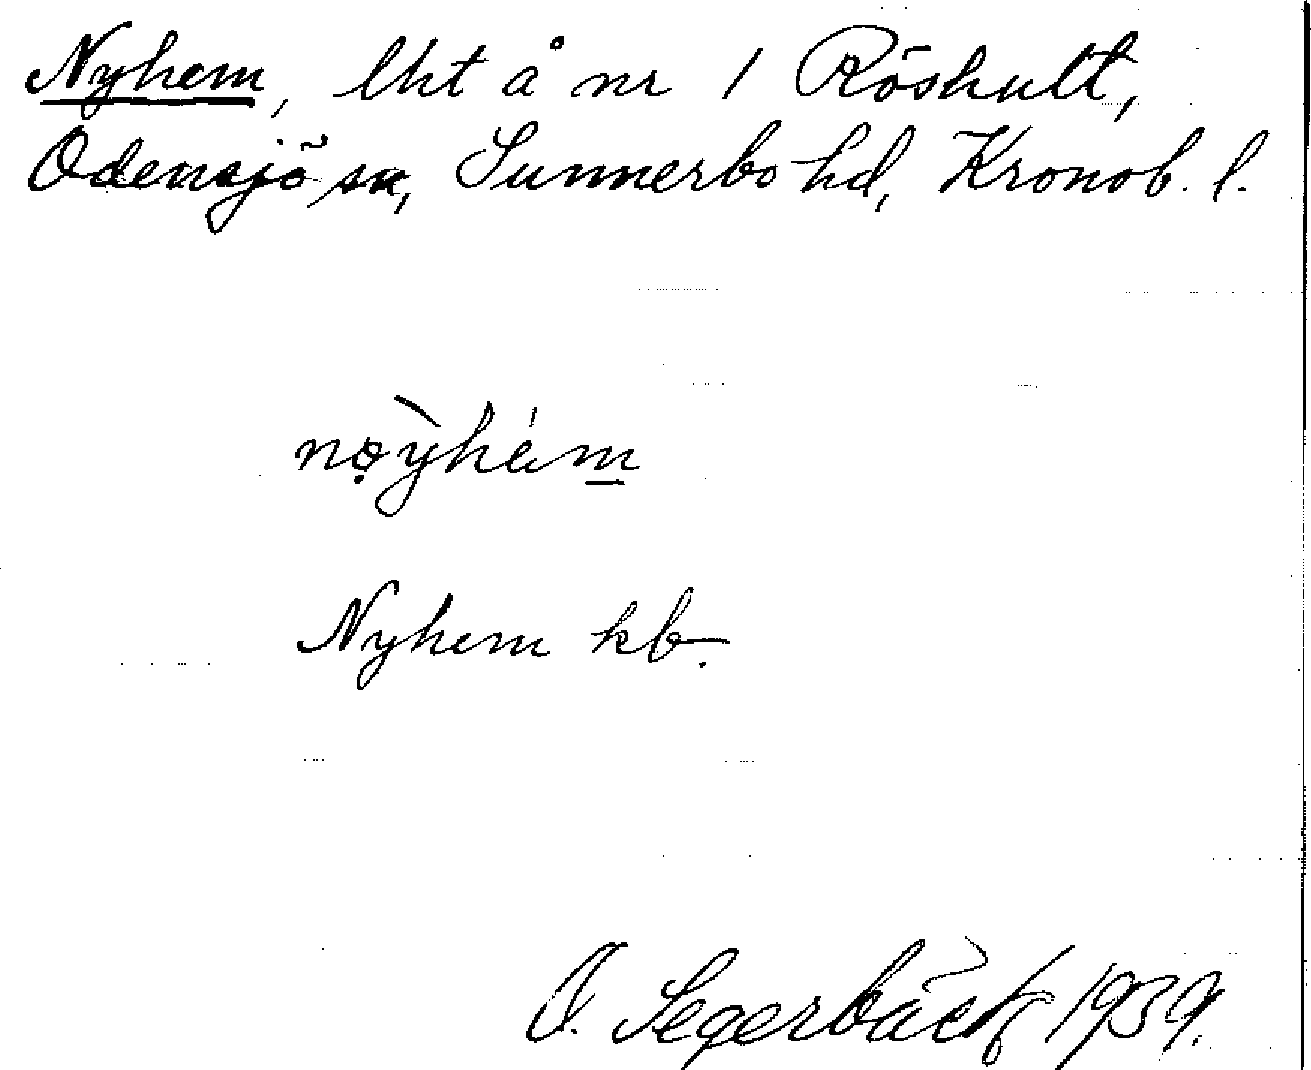 Nyhem, lht å nr 1 Röshult,
Odensjö sn, Sunnerbo hd, Kronob. l.
nọ̀yhém
Nyhem kb.
O. Segerbäck 1939.